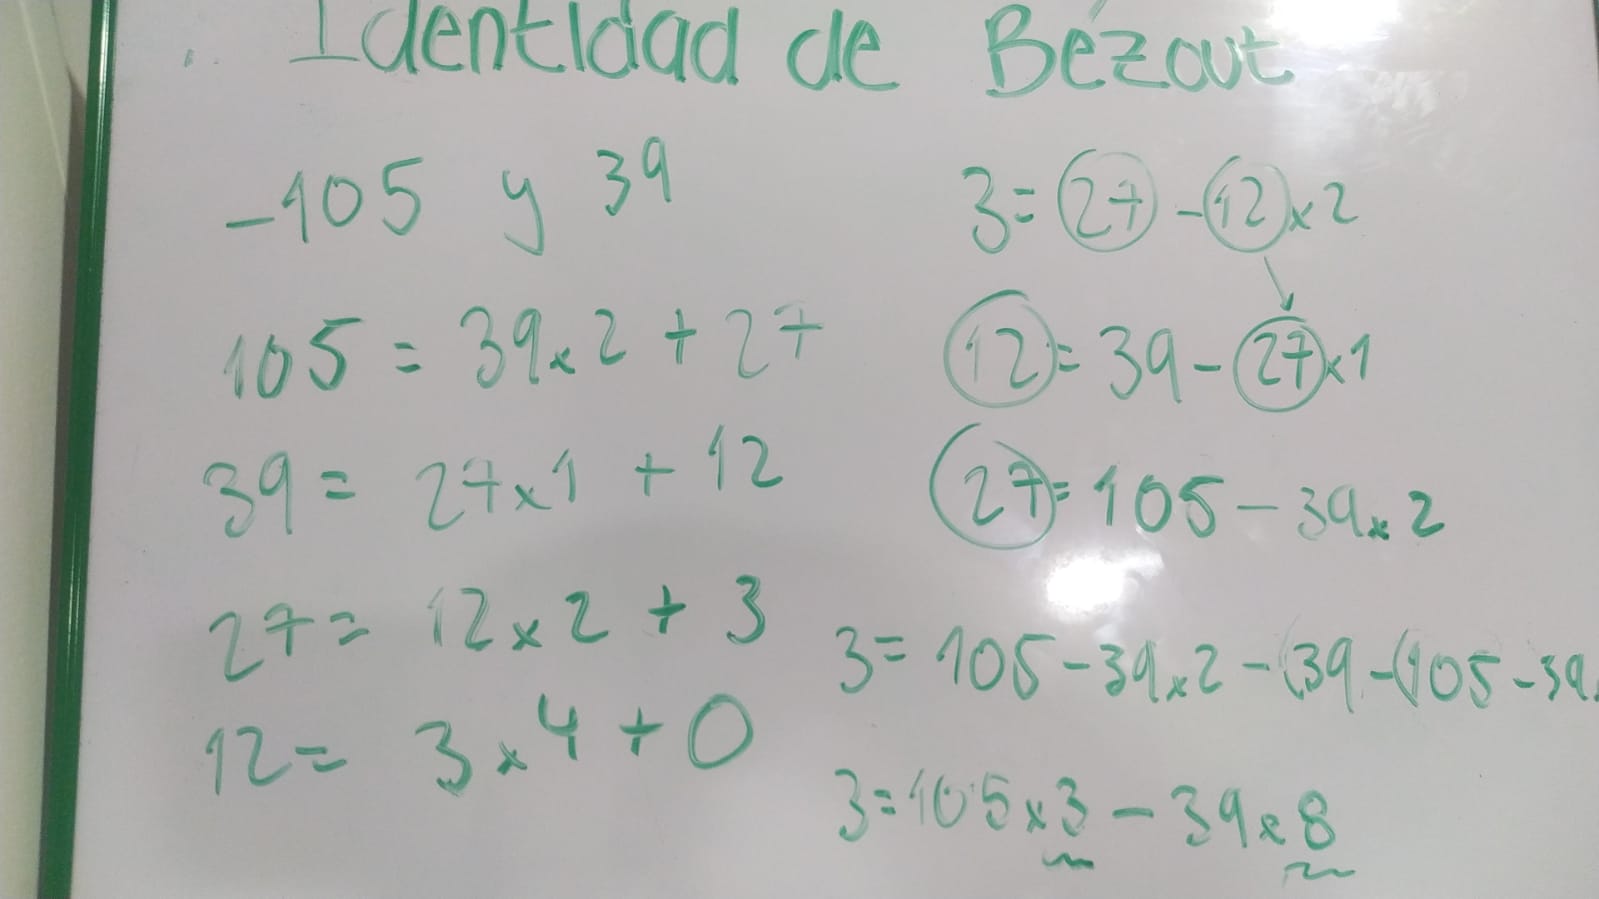 Identidad de Bézout
-105 y 39
105 = 39x2 + 27
39 = 27x1 + 12
27 = 12x2 + 3
12 = 3x4 + 0
3 = 27 - 12x2
12 = 39 - 27x1
27 = 105 - 39x2
3 = 105 - 39x2 - (39 - (105 - 39
3 = 105x3 - 39x8